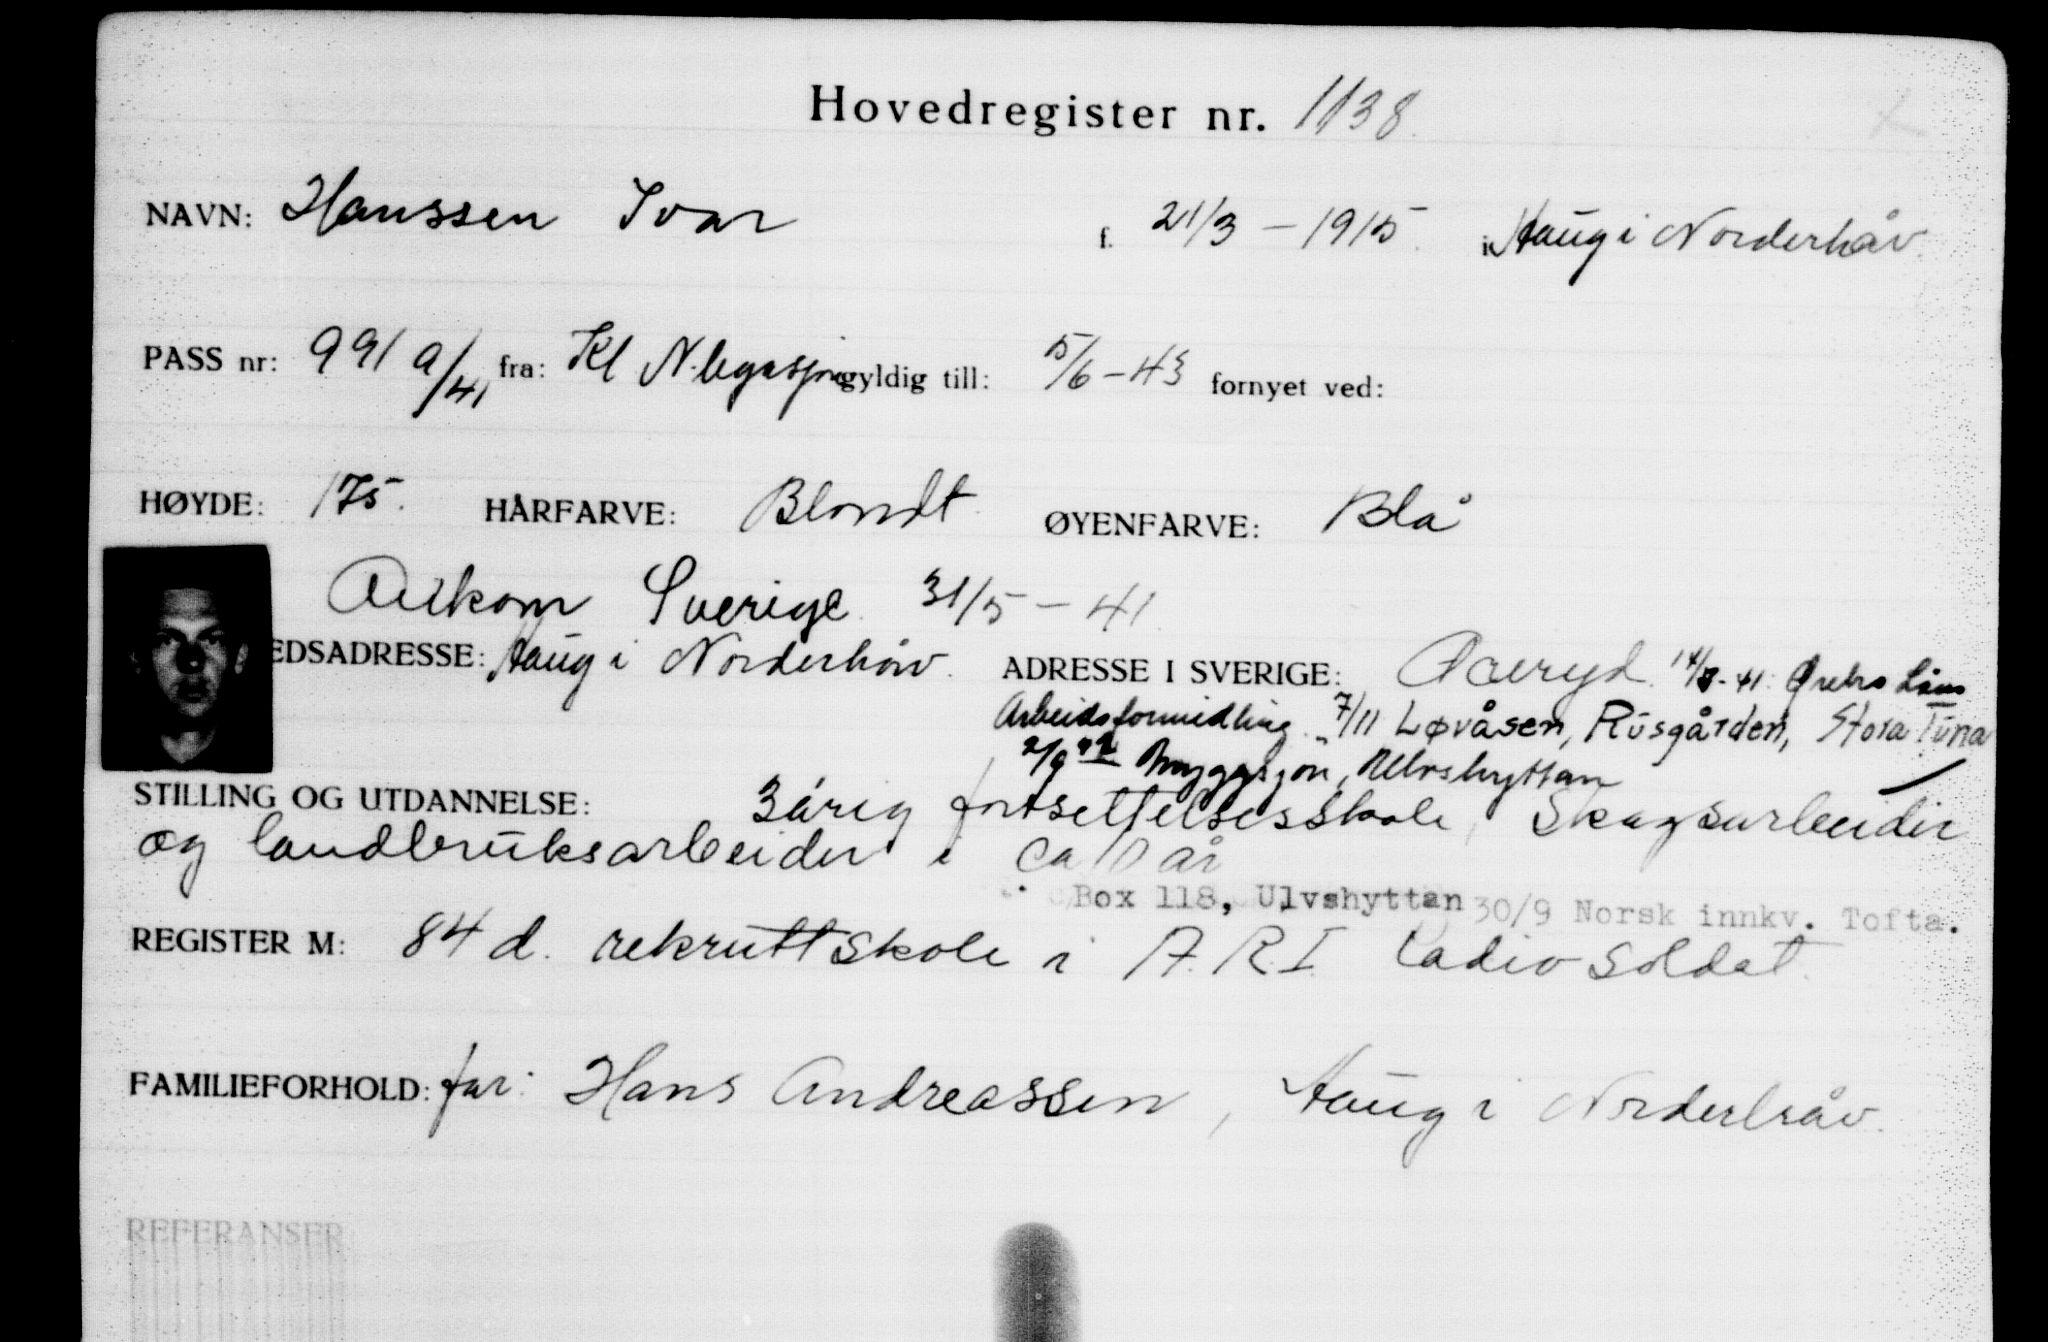 Hovedregister nr. 1138
NAVN: Hanssen Ivar f. 21/3 - 1915. i Haug i Norderhåv.
PASS nr: 991 a/41 fra: Kl N. legasjon gyldig till: 5/6 - 43 fornyet ved:
HØYDE: 175. HÅRFARVE: Blondt ØYENFARVE: Blå
Ankom Sverige. 31/5 - 41.
EDSADRESSE: Haug i Norderhåv. ADRESSE I SVERIGE: Øreryd. 14/8-41. Ørebro Läns
Arbeidsformidling. 7/11 Løvåsen, Rusgården, Stora Tuna
2/9 42 Myggsjön, Ulvshyttan
STILLING OG UTDANNELSE: 3årig fortsettelsesskole, Skogsarbeider
og landbruksarbeider i ca 10 år
Box 118, Ulvshyttan 30/9 Norsk innkv. Tofta.
REGISTER M: 84 d. rekruttskole i A.R.I. radiosoldat.
FAMILIEFORHOLD: far: Hans Andreassen, Haug i Norderhåv.
REFERANSER